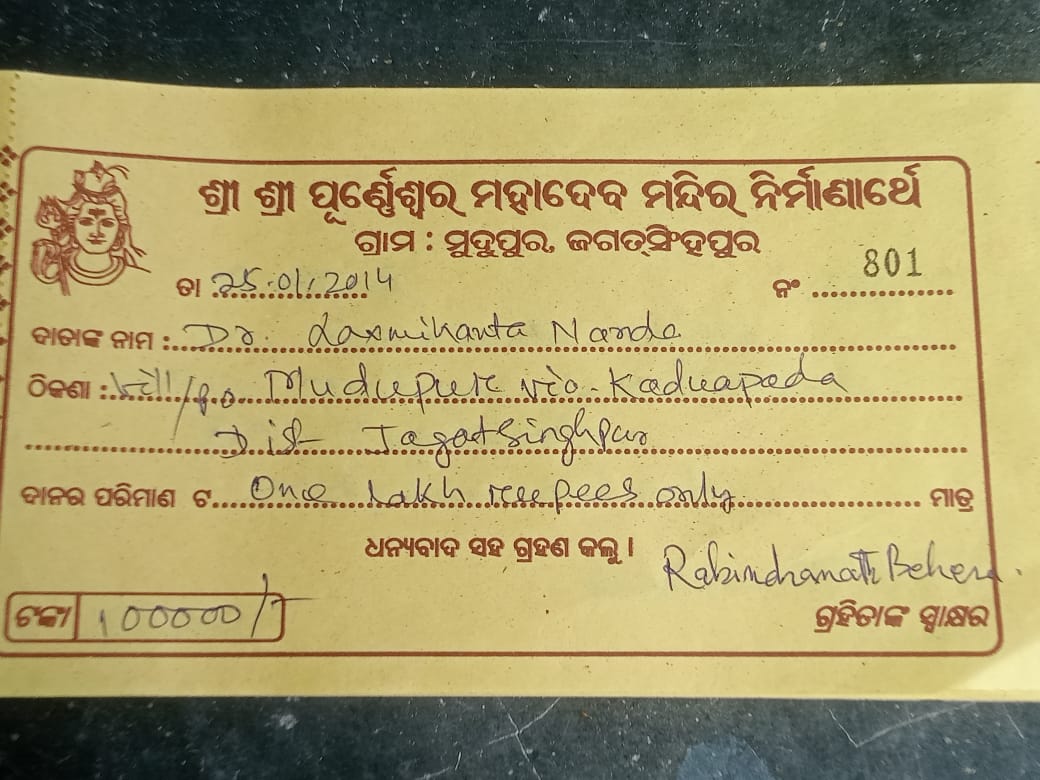 ଶ୍ରୀ ଶ୍ରୀ ପୂର୍ଣ୍ଣେଶ୍ୱର ମହାଦେବ ମନ୍ଦିର ନିର୍ମାଣାର୍ଥେ
ଗ୍ରାମ : ମୁଦୁପୁର, ଜଗତ୍‌ସିଂହପୁର
ତା 25.01.2014 ନଂ 801
ଦାତାଙ୍କ ନାମ : Dr. Laxmikanta Nanda
ଠିକଣା : vill/po Mudupur via - Kaduapada
Dist Jagatsinghpur
ଦାନର ପରିମାଣ ଟ One lakh reupees only ମାତ୍ର
ଧନ୍ୟବାଦ ସହ ଗ୍ରହଣ କଲୁ ।
Rabindranath Behera
ଟଙ୍କା 100000/- ଗ୍ରହିତାଙ୍କ ସ୍ୱାକ୍ଷର